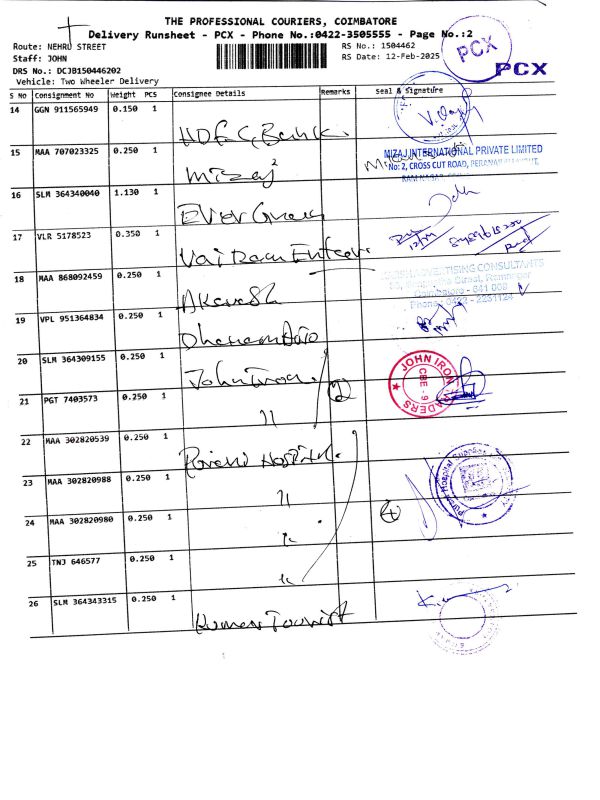 THE PROFESSIONAL COURIERS, COIMBATORE
Delivery Runsheet - PCX - Phone No.:0422-3505555 - Page No.:2
Route: NEHRU STREET
RS No.: 1504462
Staff: JOHN
RS Date: 12-Feb-2025
DRS No.: DCJB150446202
Vehicle: Two Wheeler Delivery
PCX
PCX
S No Consignment No Weight PCS Consignee Details Remarks Seal & Signature
14 GGN 911565949 0.150 1 HDFC Bank
15 MAA 707023325 0.250 1 Mizaj
MIZAJ INTERNATIONAL PRIVATE LIMITED
No: 2, CROSS CUT ROAD,
16 SLM 364340040 1.130 1 Ever Green
17 VLR 5178523 0.350 1
18 MAA 868092459 0.250 1 Akaash
ADVERTISING CONSULTANTS
Street, Ramnagar
Coimbatore - 641 009
Phone: 0422 - 2231124
19 VPL 951364834 0.250 1
20 SLM 364309155 0.250 1 John Iron
JOHN IRON TRADERS
CBE - 9
21 PGT 7403573 0.250 1 "
2
22 MAA 302820539 0.250 1 Hospital
23 MAA 302820988 0.250 1 "
24 MAA 302820980 0.250 1 "
4
25 TNJ 646577 0.250 1 "
26 SLM 364343315 0.250 1 Kumar Tourist